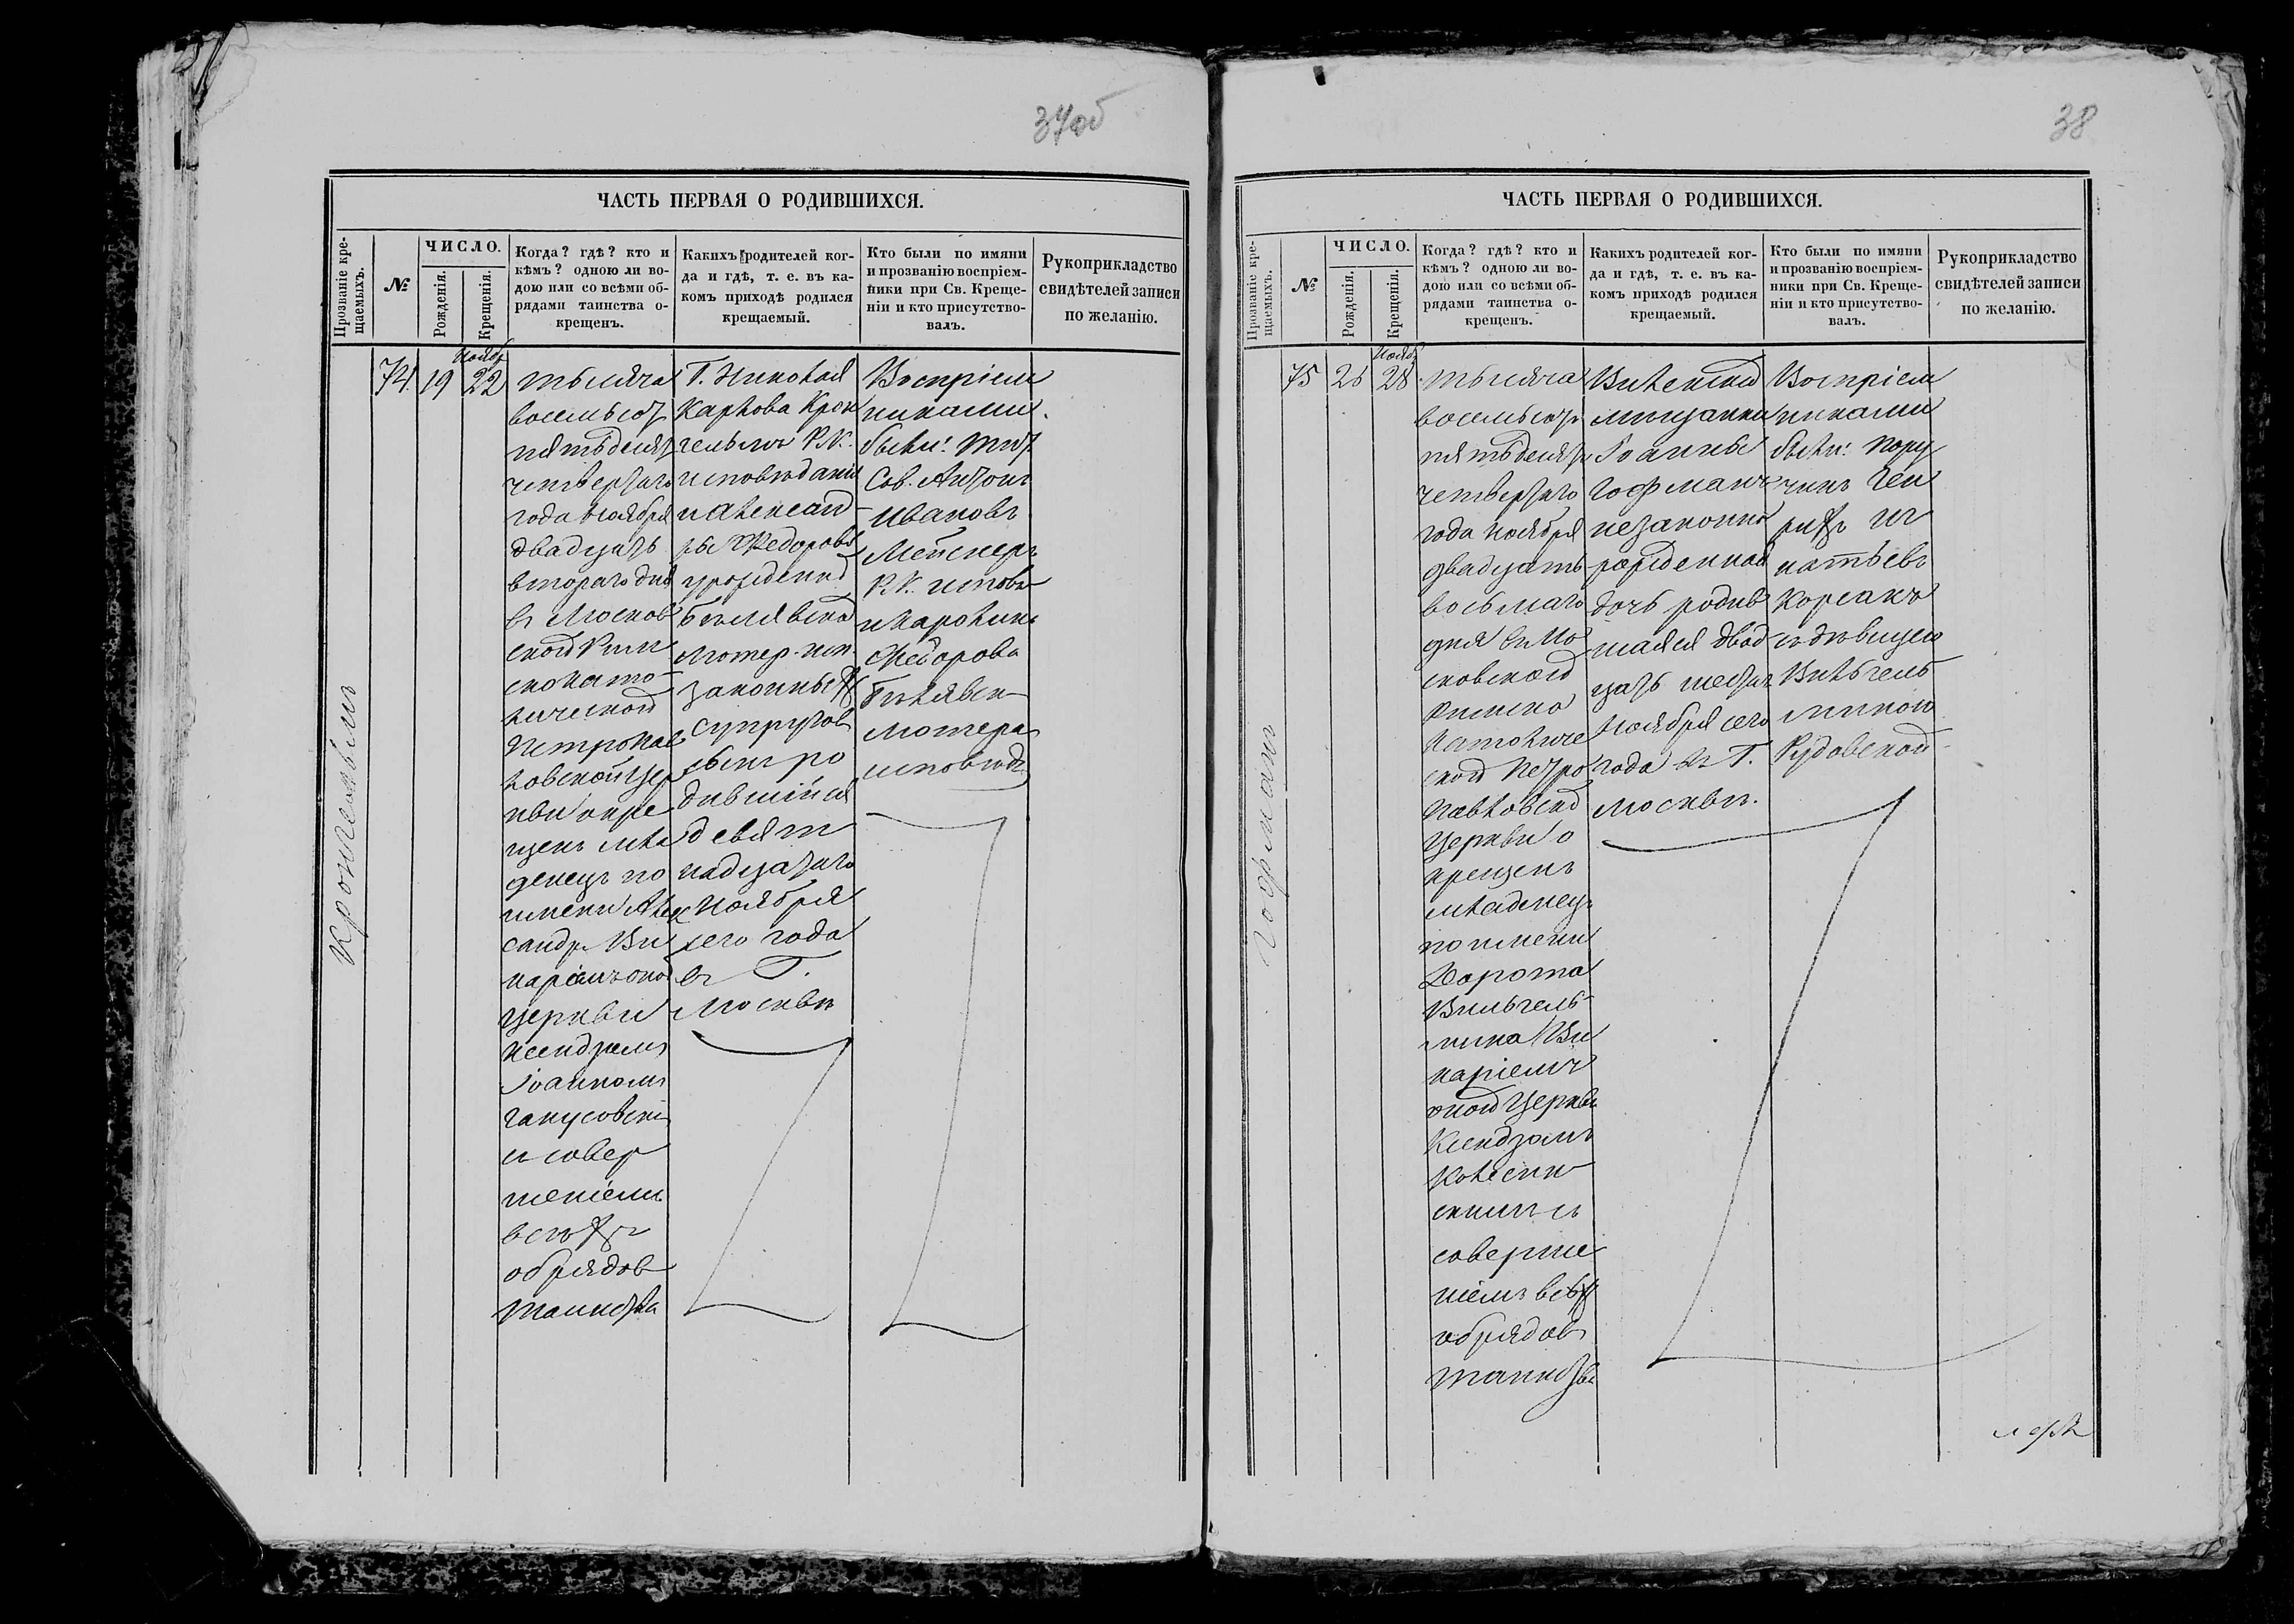 37об
ЧАСТЬ ПЕРВАЯ О РОДИВШИХСЯ.
Прозваніе кре-
щаемыхъ.
№
ЧИСЛО.
Рожденія.
Крещенія.
Когда? гдѣ? кто и
кѣмъ? одною ли во-
дою или со всѣми об-
рядами таинства о-
крещенъ.
Какихъ родителей ког-
да и гдѣ, т. е. въ ка-
комъ приходѣ родился
крещаемый.
Кто были по имяни
и прозванію воспріем-
ники при Св. Креще-
ніи и кто присутство-
валъ.
Рукоприкладство
свидѣтелей записи
по желанію.
Кронгельмъ
74.
19
Ноябр
22
тысяча
восемьсот
пятьдесят
четвертаго
года Ноября
двадцать
втораго дня
въ Москов
ской Рим
ско като-
лической
Петропав
ловской Цер
кви окре
щенъ мла
денецъ по
имени Алек
сандръ Ви
каріемъ оной
Церкви
Ксендзомъ
Іоанномъ
съ совер
шеніемъ
всѣхъ
обрядов
таинства
Г. Николая
Карлова Крон
гельмъ Р.К.
исповѣданія
и Александ-
ры Федоровы
урожденной
законныхъ
супругов
сынъ ро
дившійся
девят
надцатаго
Ноября
сего года
въ Г.
Москвѣ
Воспріем
никами
были: Тит.
Сов. Антонъ
Ивановъ
Р.К. исповѣ
и Каролина
Федорова
лютера
исповѣд
38
ЧАСТЬ ПЕРВАЯ О РОДИВШИХСЯ.
Прозваніе кре-
щаемыхъ.
№
ЧИСЛО.
Рожденія.
Крещенія.
Когда? гдѣ? кто и
кѣмъ? одною ли во-
дою или со всѣми об-
рядами таинства о-
крещенъ.
Какихъ родителей ког-
да и гдѣ, т. е. въ ка-
комъ приходѣ родился
крещаемый.
Кто были по имяни
и прозванію воспріем-
ники при Св. Креще-
ніи и кто присутство-
валъ.
Рукоприкладство
свидѣтелей записи
по желанію.
Гофманъ
75
26
Ноябр
28
тысяча
восемьсотъ
пятьдесять
четвертаго
года Ноября
двадцать
восьмаго
дня въ Мо
сковской
Римско
Католиче
ской Петро
Павловской
Церкви о
крещенъ
младенецъ
по имени
Дорота
Вильгель-
мина Ви
каріемъ
оной Церкви
Ксендзомъ
скимъ съ
соверше
ніемъ всѣх
обрядовъ
таинства
Виленской
мещанки
Іоанны
Гофманъ
незаконно
рожденная
дочь родив
шаяся двад
цать шестаго
Ноября сего
года въ Г.
Москвѣ.
Воспріем
никами
были: пору
чикъ Ген
рихъ Иг
натьевъ
Корсакъ
съ дѣвицею
Вильгель
миною
Рудовской